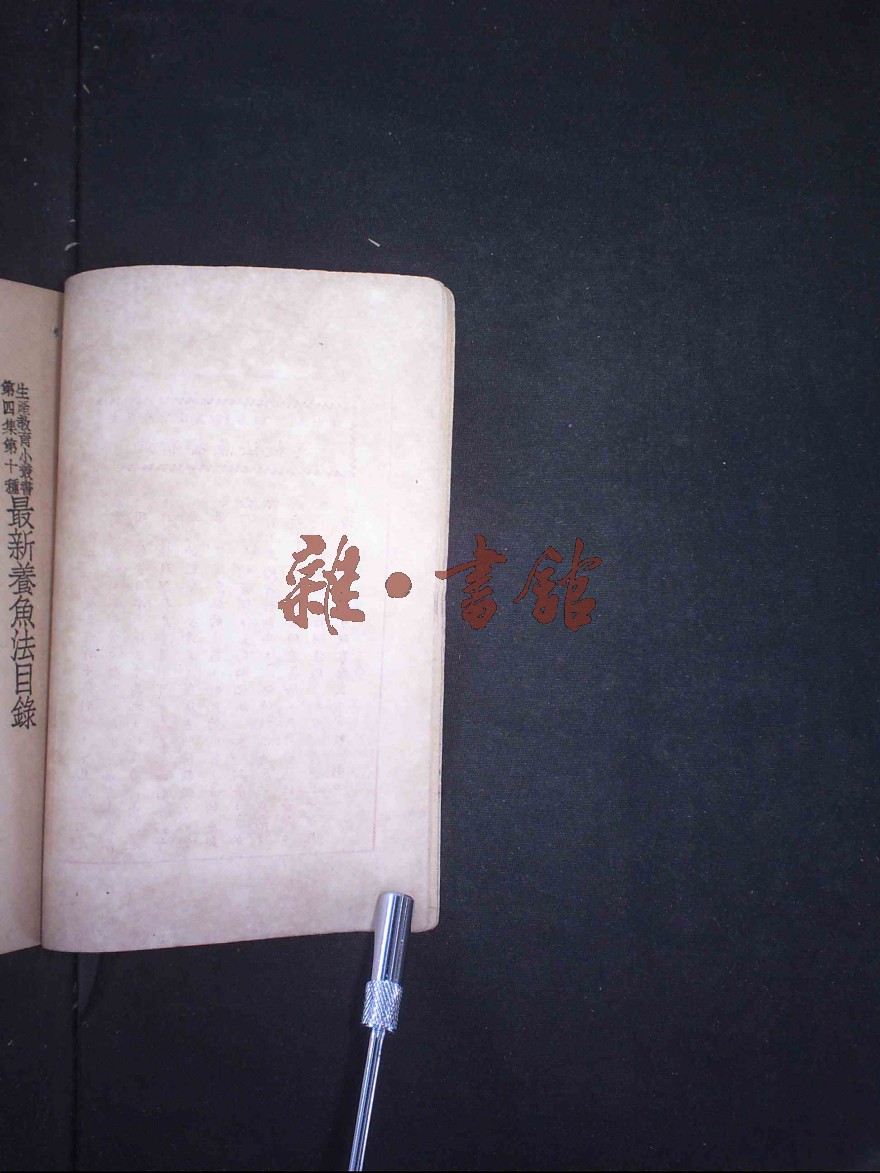 生產教育小叢書
第四集第十種
最新養魚法目錄
雜·書館